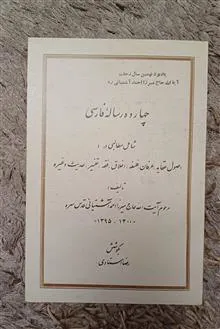 یادبود نهمین سال رحلت
آیة الله حاج میرزا احمد آشتیانی ره
چهارده رسالهٔ فارسی
شامل مطالبی در:
اصول عقاید، عرفان، فلسفه، اخلاق، فقه، تفسیر، حدیث و غیره
تألیف:
مرحوم آیت الله حاج میرزا احمد آشتیانی قدس سره
(۱۳۰۰ - ۱۳۹۵)
بکوشش
رضا استادی